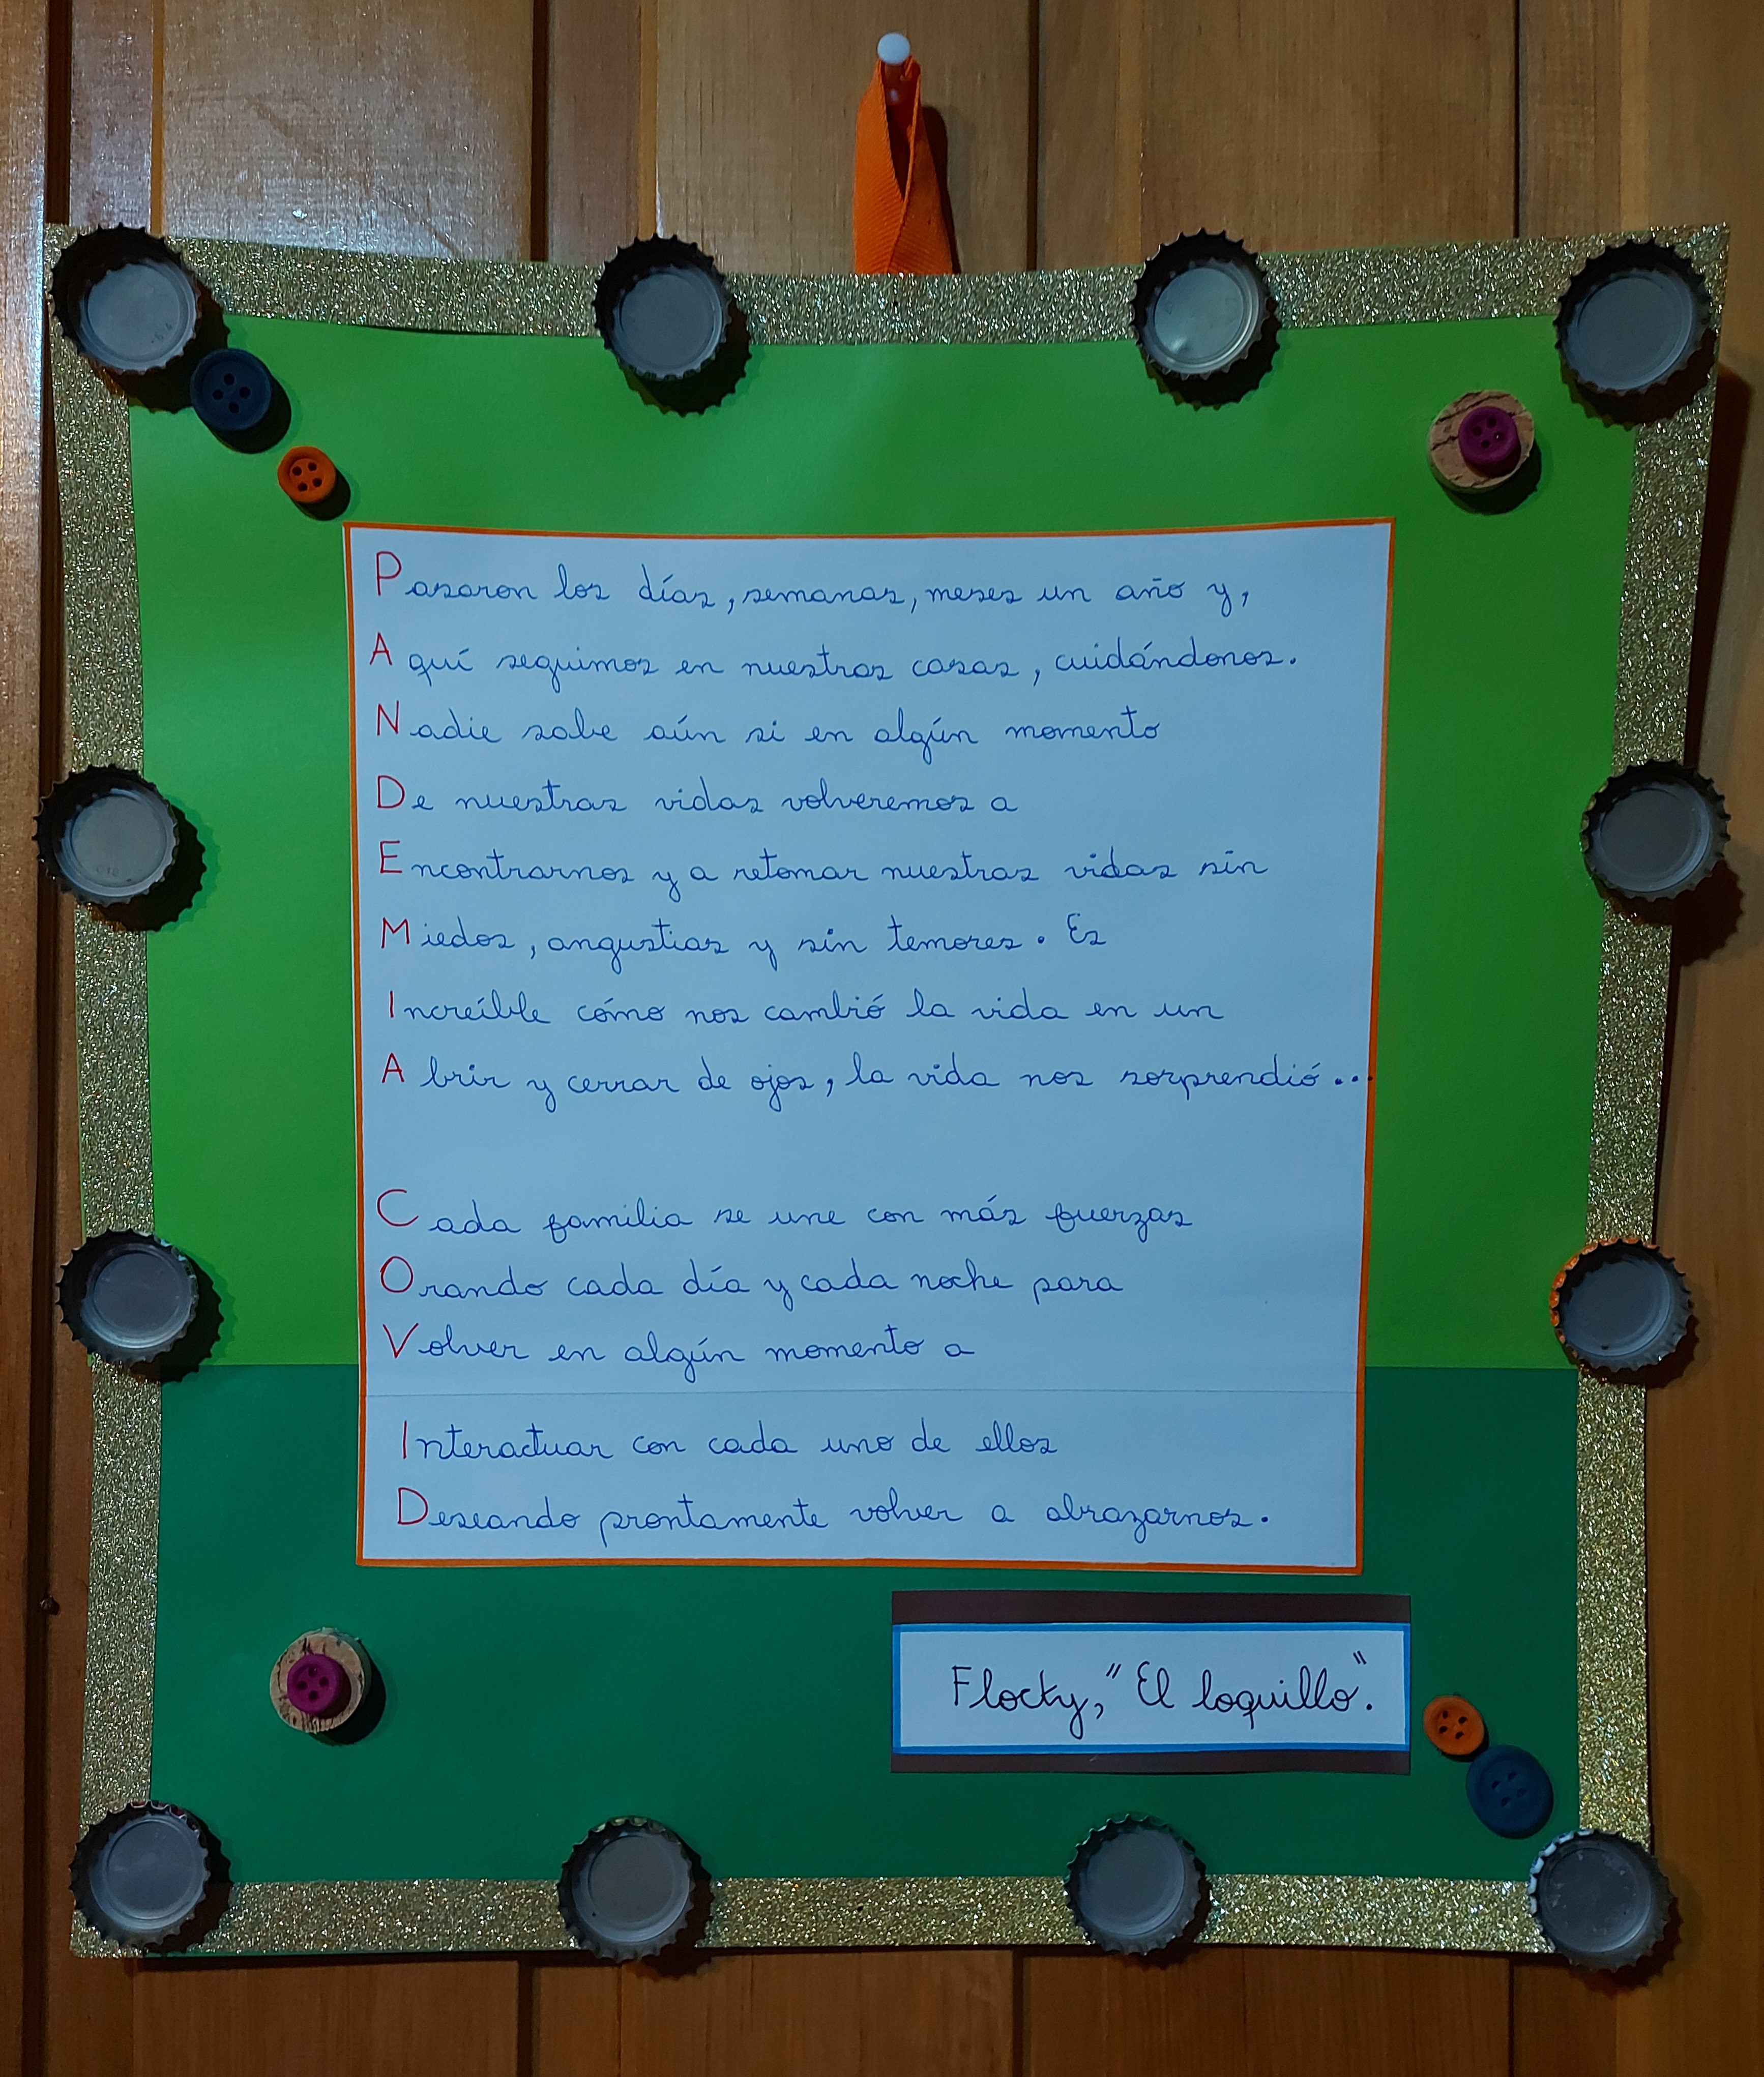 Pasaron los días, semanas, meses un año y,
Aquí seguimos en nuestras casas, cuidándonos.
Nadie sabe aún si en algún momento
De nuestras vidas volveremos a
Encontrarnos y a retomar nuestras vidas sin
Miedos, angustias y sin temores. Es
Increíble cómo nos cambió la vida en un
Abrir y cerrar de ojos, la vida nos sorprendió...
Cada familia se une con más fuerzas
Orando cada día y cada noche para
Volver en algún momento a
Interactuar con cada uno de ellos
Deseando prontamente volver a abrazarnos.
Flocky, "El loquillo".